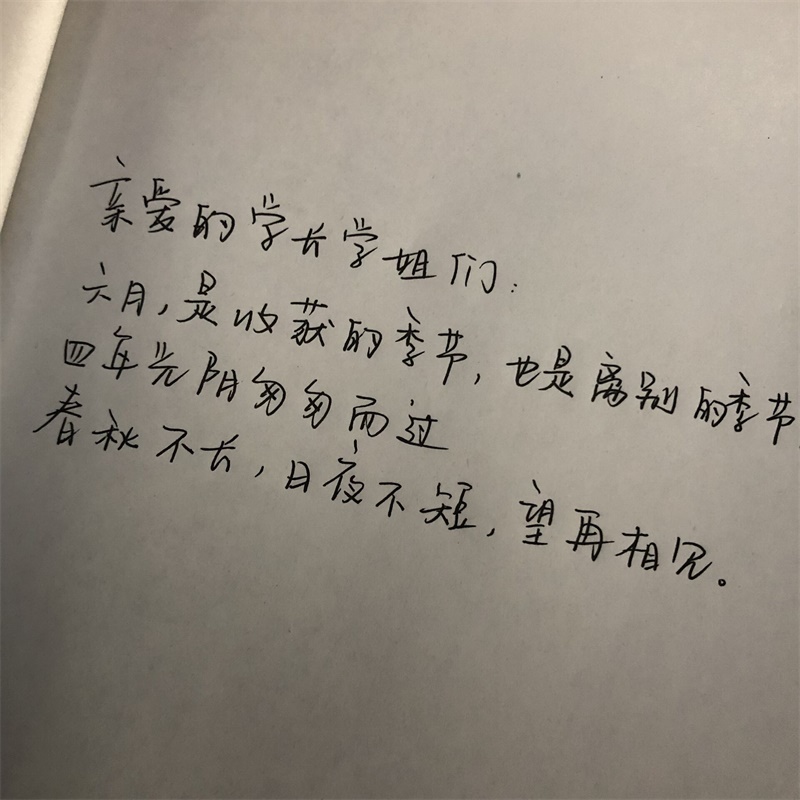 亲爱的学长学姐们:
六月,是收获的季节,也是离别的季节
四年光阴匆匆而过
春秋不长,日夜不短,望再相见。